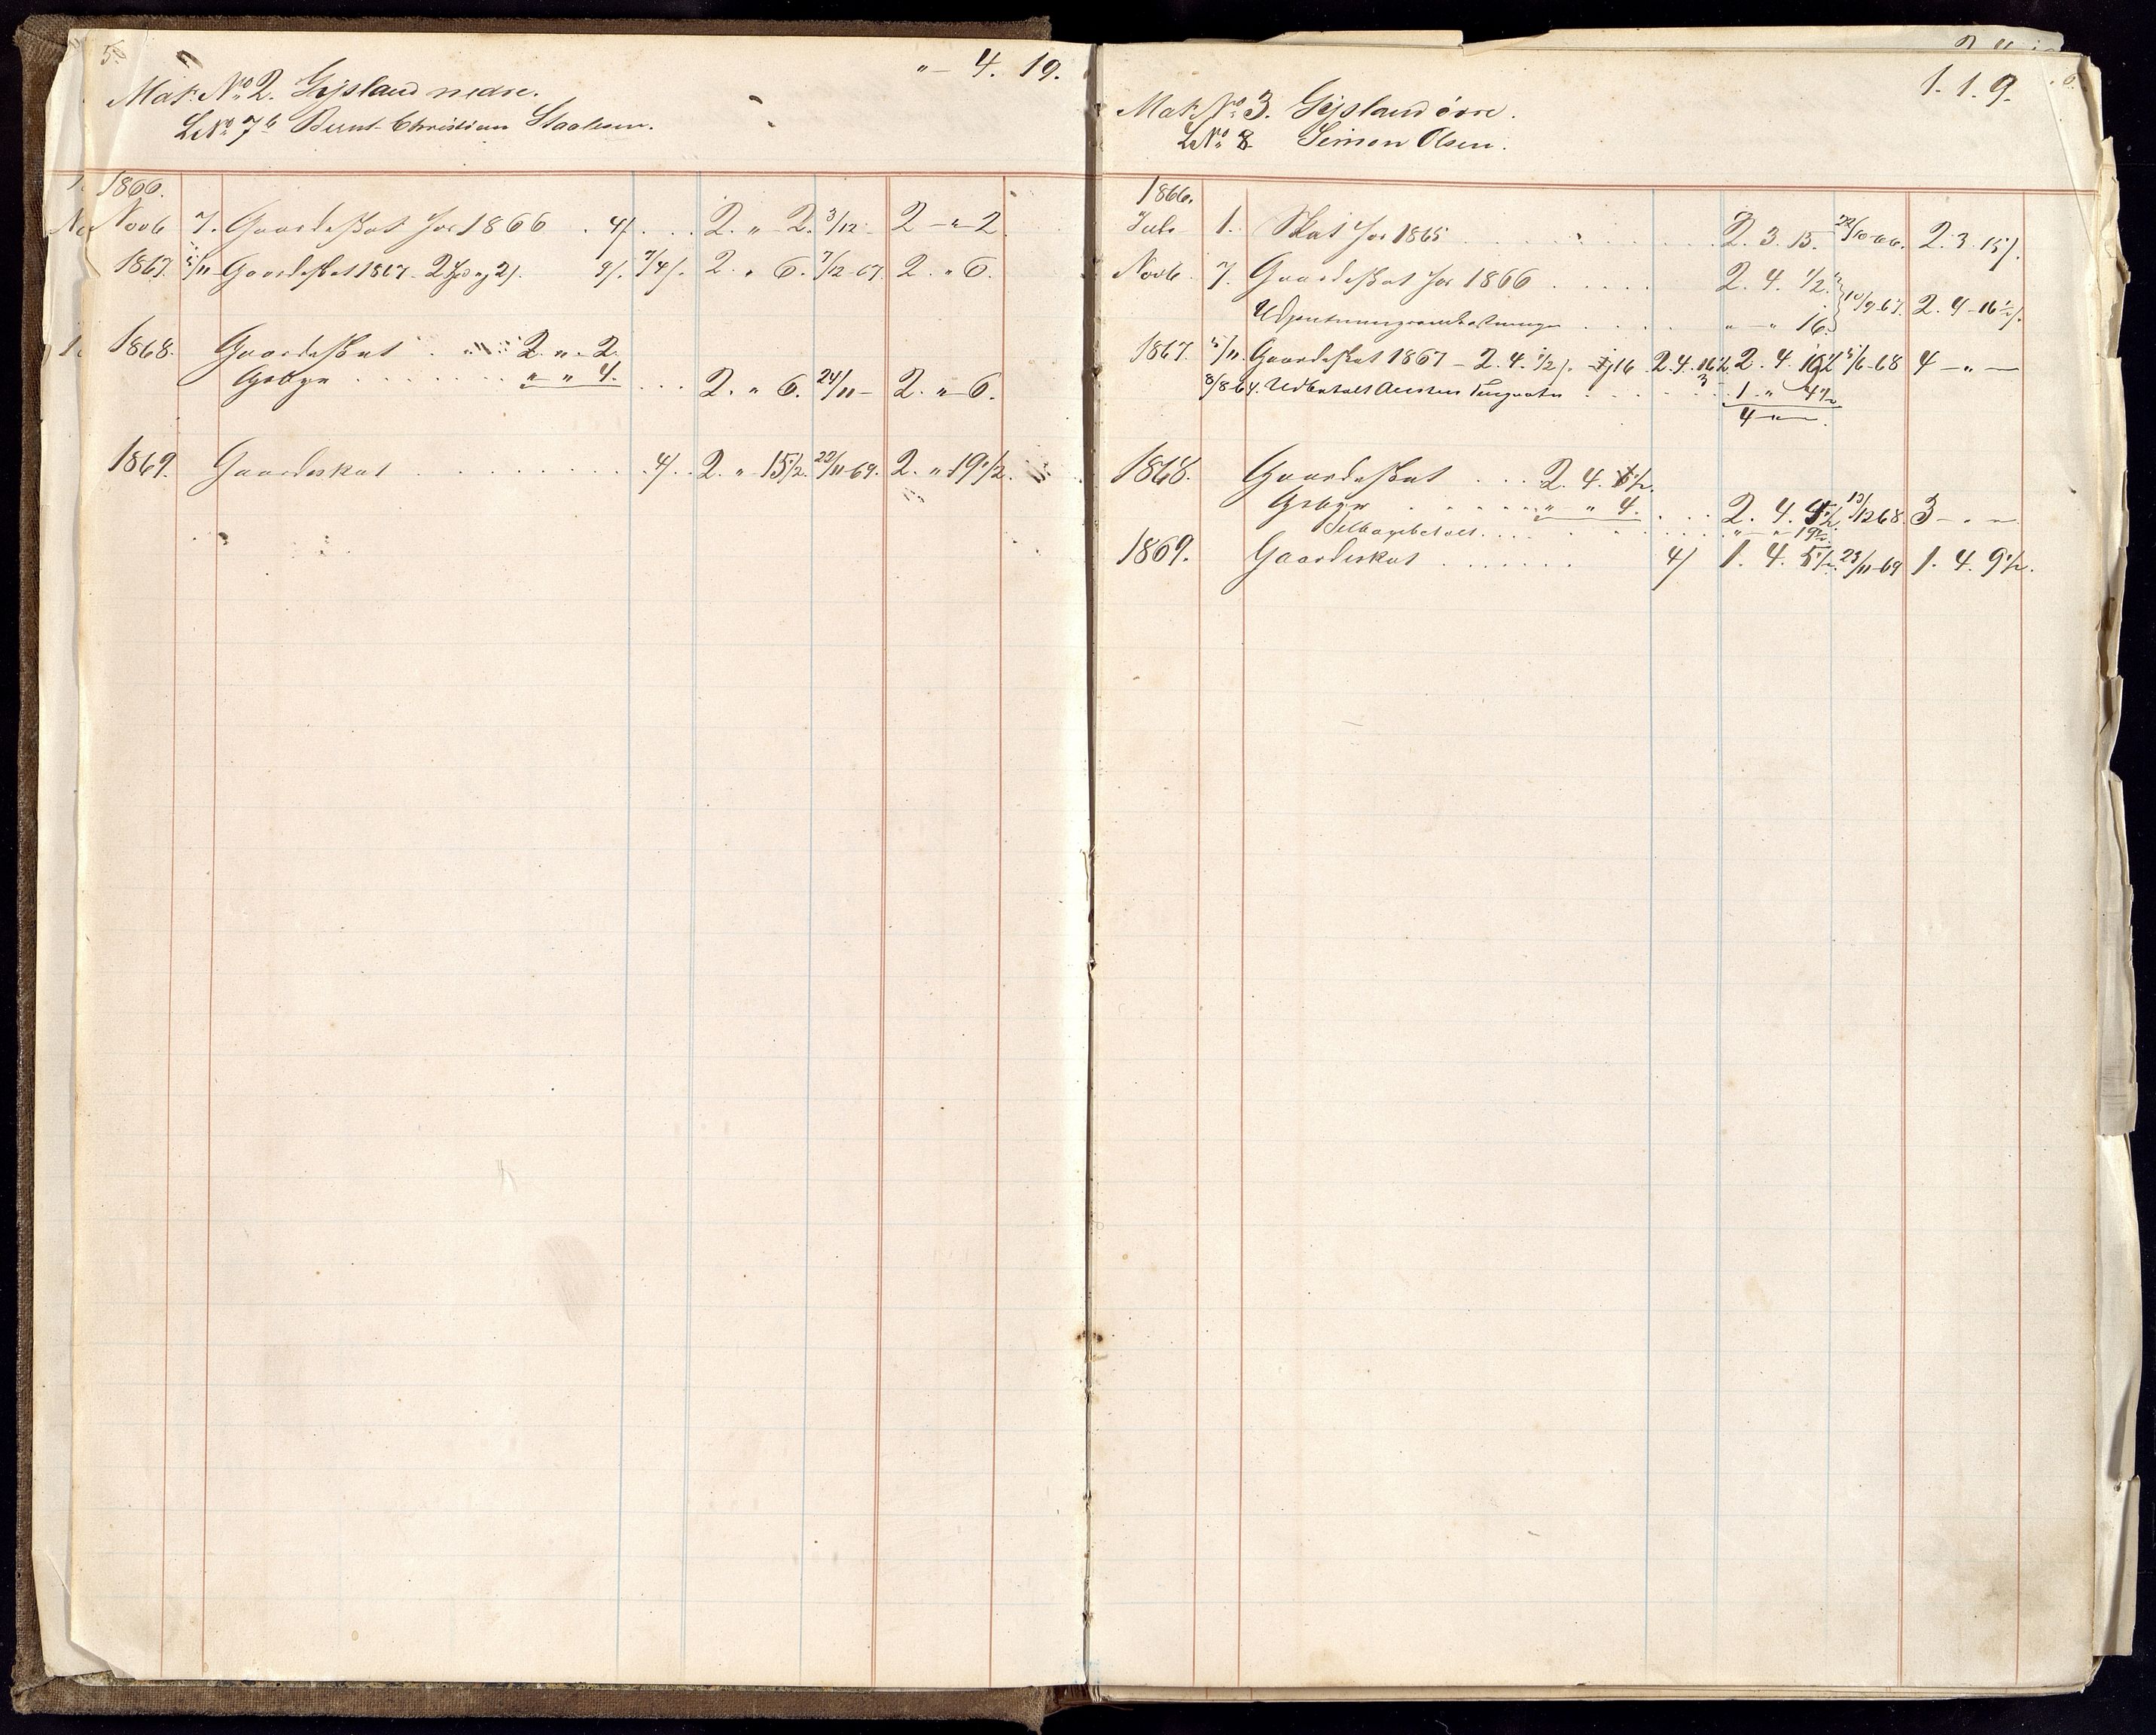 5.
" - 4. 19.
Mat: No 2. Gysland nedre.
L No 7b Bernt Christian Staalesen.
1866.
Novb 7. Gaardeskat for 1866 . 4/ . . . 2. " 2. 3/12 - 2 - " 2
1867. 5/11 Gaardeskat 1867 - 2 Spd og 2/. 4/. 2. " 6. 7/12-67. 2. " 6.
1868. Gaardeskat . 2. " . 2.
Gebyr . . . . . . . " " 4. . . . 2. " 6. 24/11 - 2. " 6.
1869. Gaardeskat . . . . . . . . 4/. . 2. " 15 1/2. 22/11-69. 2. " 19 1/2.
6.
1. 1. 9.
Mat: No 3. Gysland övre.
L No 8 Simon Olsen.
1866.
Juli 1. Skat for 1865 . . . . . . . . . 2. 3. 15. 22/10-66. 2. 3. 15/.
Novb. 7. Gaardeskat for 1866 . . . . . 2. 4. 1/2. 10/9-67. 2. 4 - 16 1/2/.
" " 16.
1867. 5/11. Gaardeskat 1867 - 2. 4. 1/2/. 16 2. 4. 16 1/2 2. 4. 5/6-68 4 - " -
8/8-64. Udbetalt . . . . . . 1 . "
4 - " -
1868. Gaardeskat . . . 2. 4.
Gebyr . . . . . . " " 4. . . . 2. 4. 13/12 68. 3 - " -
. . . . " - " 19
1869. Gaardeskat . . . . . . 4/ 1. 4. 5 1/2. 23/11-69 1. 4. 9 1/2.